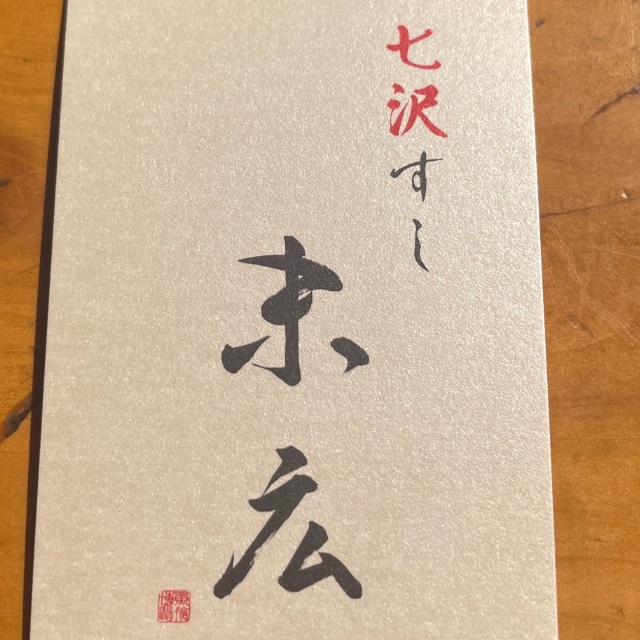 七沢すし
末広